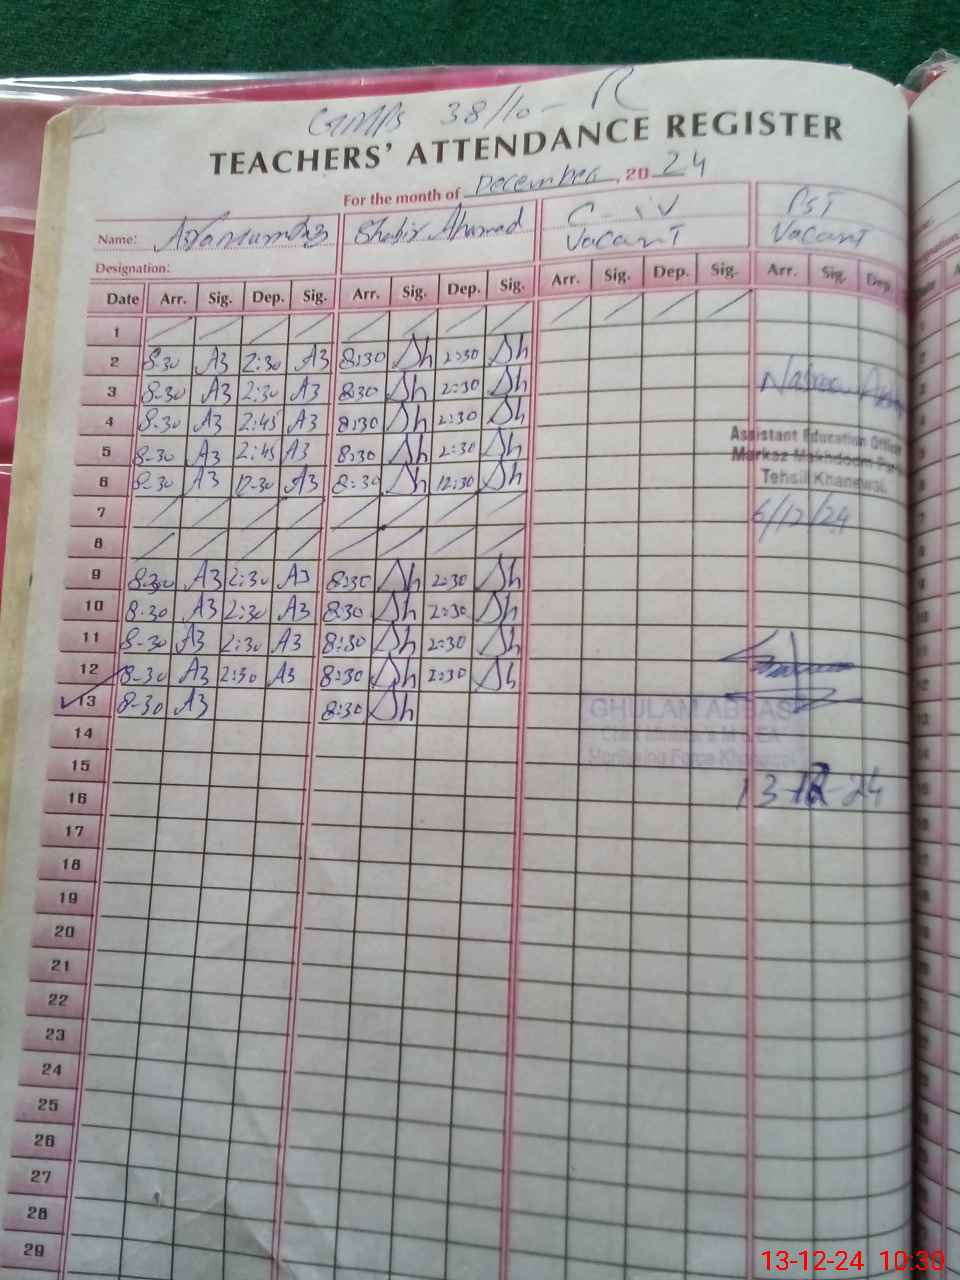 GMPS 38/10-R
TEACHERS' ATTENDANCE REGISTER
For the month of December, 20 24
Name: Shabir Ahamad C-iV Vacant PST Vacant
Designation:
Date Arr. Sig. Dep. Sig. Arr. Sig. Dep. Sig. Arr. Sig. Dep. Sig. Arr. Sig. Dep.
1
2 8-30 A3 2:30 A3 8:30 Sh 2:30 Sh
3 8-30 A3 2:30 A3 8:30 Sh 2:30 Sh
4 8-30 A3 2:45 A3 8:30 Sh 2:30 Sh
5 8-30 A3 2:45 A3 8:30 Sh 2:30 Sh
6 8-30 A3 12-30 A3 8:30 Sh 12:30 Sh
7
8
9 8-30 A3 2:30 A3 8:30 Sh 2:30 Sh
10 8-30 A3 2:30 A3 8:30 Sh 2:30 Sh
11 8-30 A3 2:30 A3 8:30 Sh 2:30 Sh
12 8-30 A3 2:30 A3 8:30 Sh 2:30 Sh
13 8-30 A3 8:30 Sh
14
15
16
17
18
19
20
21
22
23
24
25
26
27
28
29
Assistant Education Officer
Markaz Makhdoom Pur
Tehsil Khanewal
6/12/24
GHULAM ABBAS
Monitoring Force Khanewal
13-12-24
13-12-24 10:30